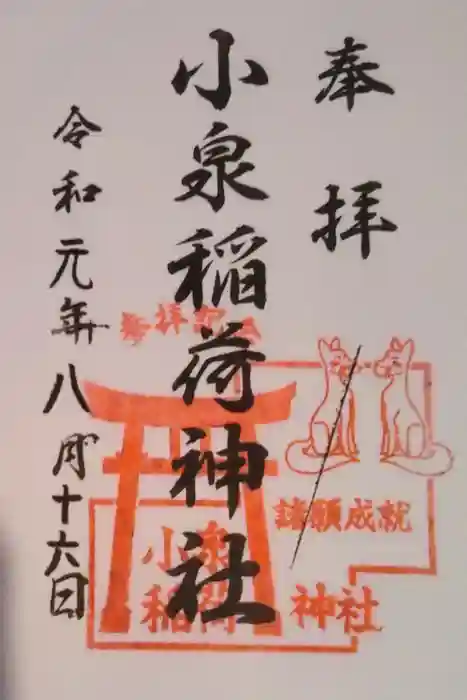 奉拝
小泉稲荷神社
令和元年八月十六日
参拝記念
諸願成就
小泉
稲荷神社